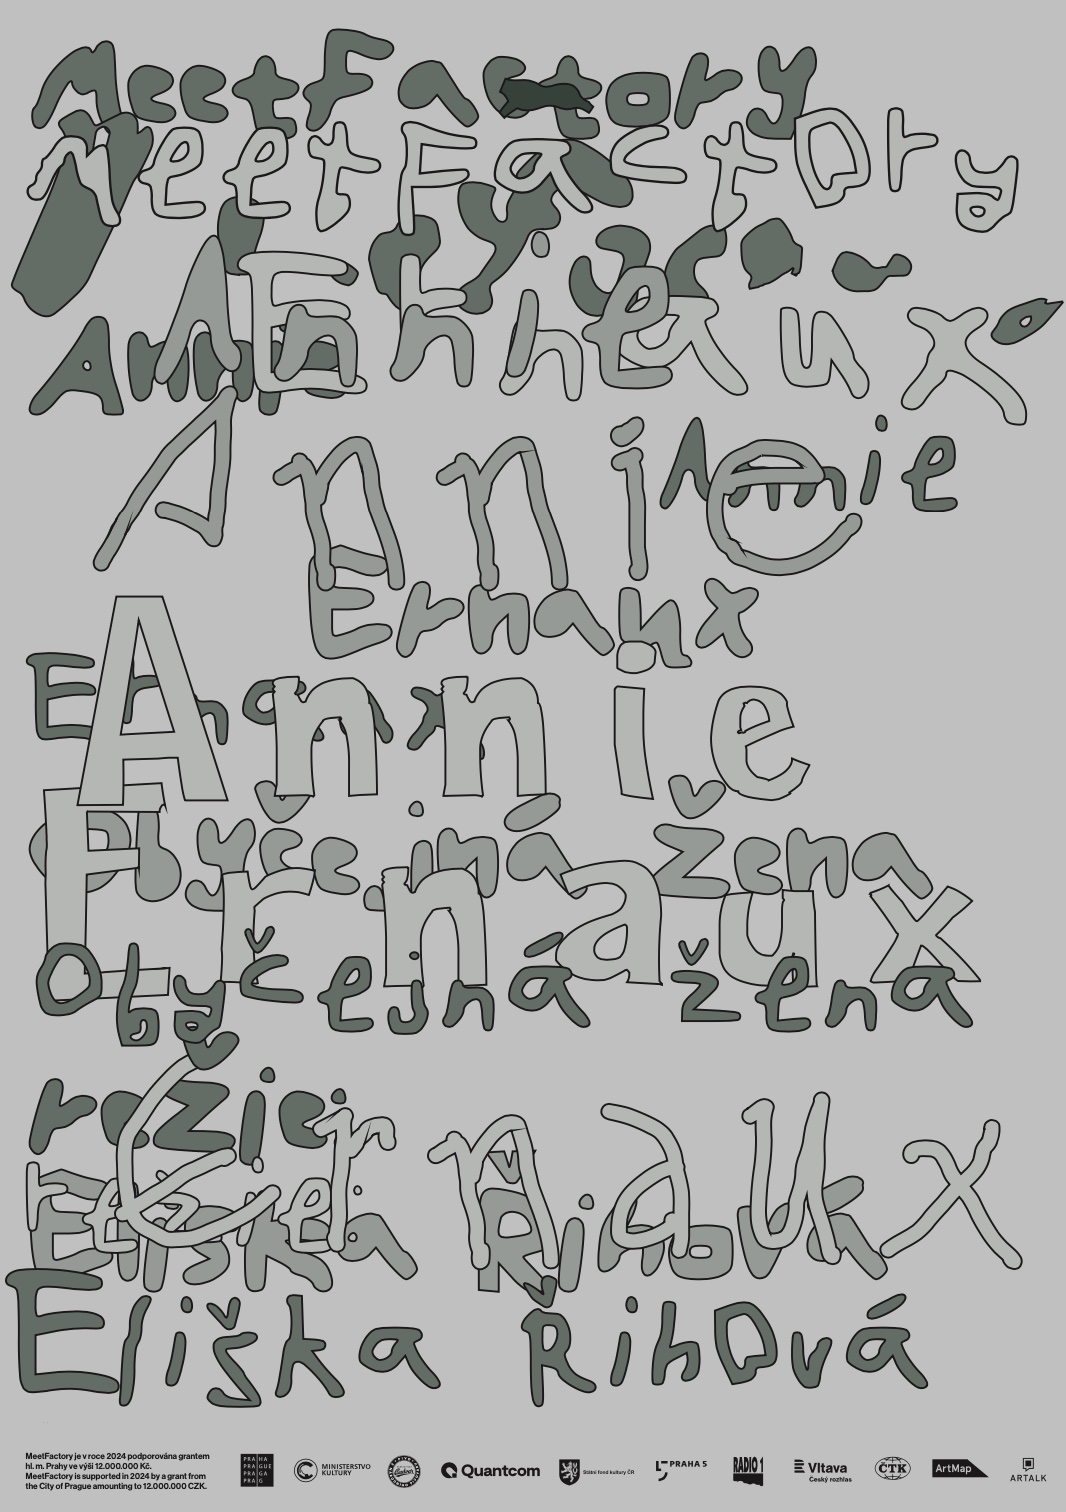 MeetFactory
MeetFactory
Annie
Ernaux
Annie
Annie
Ernaux
Annie
Ernaux
Obyčejná žena
Ernaux
Obyčejná žena
režie:
Ernaux
režie:
Eliška Říhová
Eliška Říhová
MeetFactory je v roce 2024 podporována grantem
hl. m. Prahy ve výši 12.000.000 Kč.
MeetFactory is supported in 2024 by a grant from
the City of Prague amounting to 12.000.000 CZK.
PRA HA
PRA GUE
PRA GA
PRA G
MINISTERSTVO
KULTURY
Quantcom
Státní fond kultury ČR
PRAHA 5
RADIO 1
Vltava
Český rozhlas
ČTK
ArtMap
ARTALK